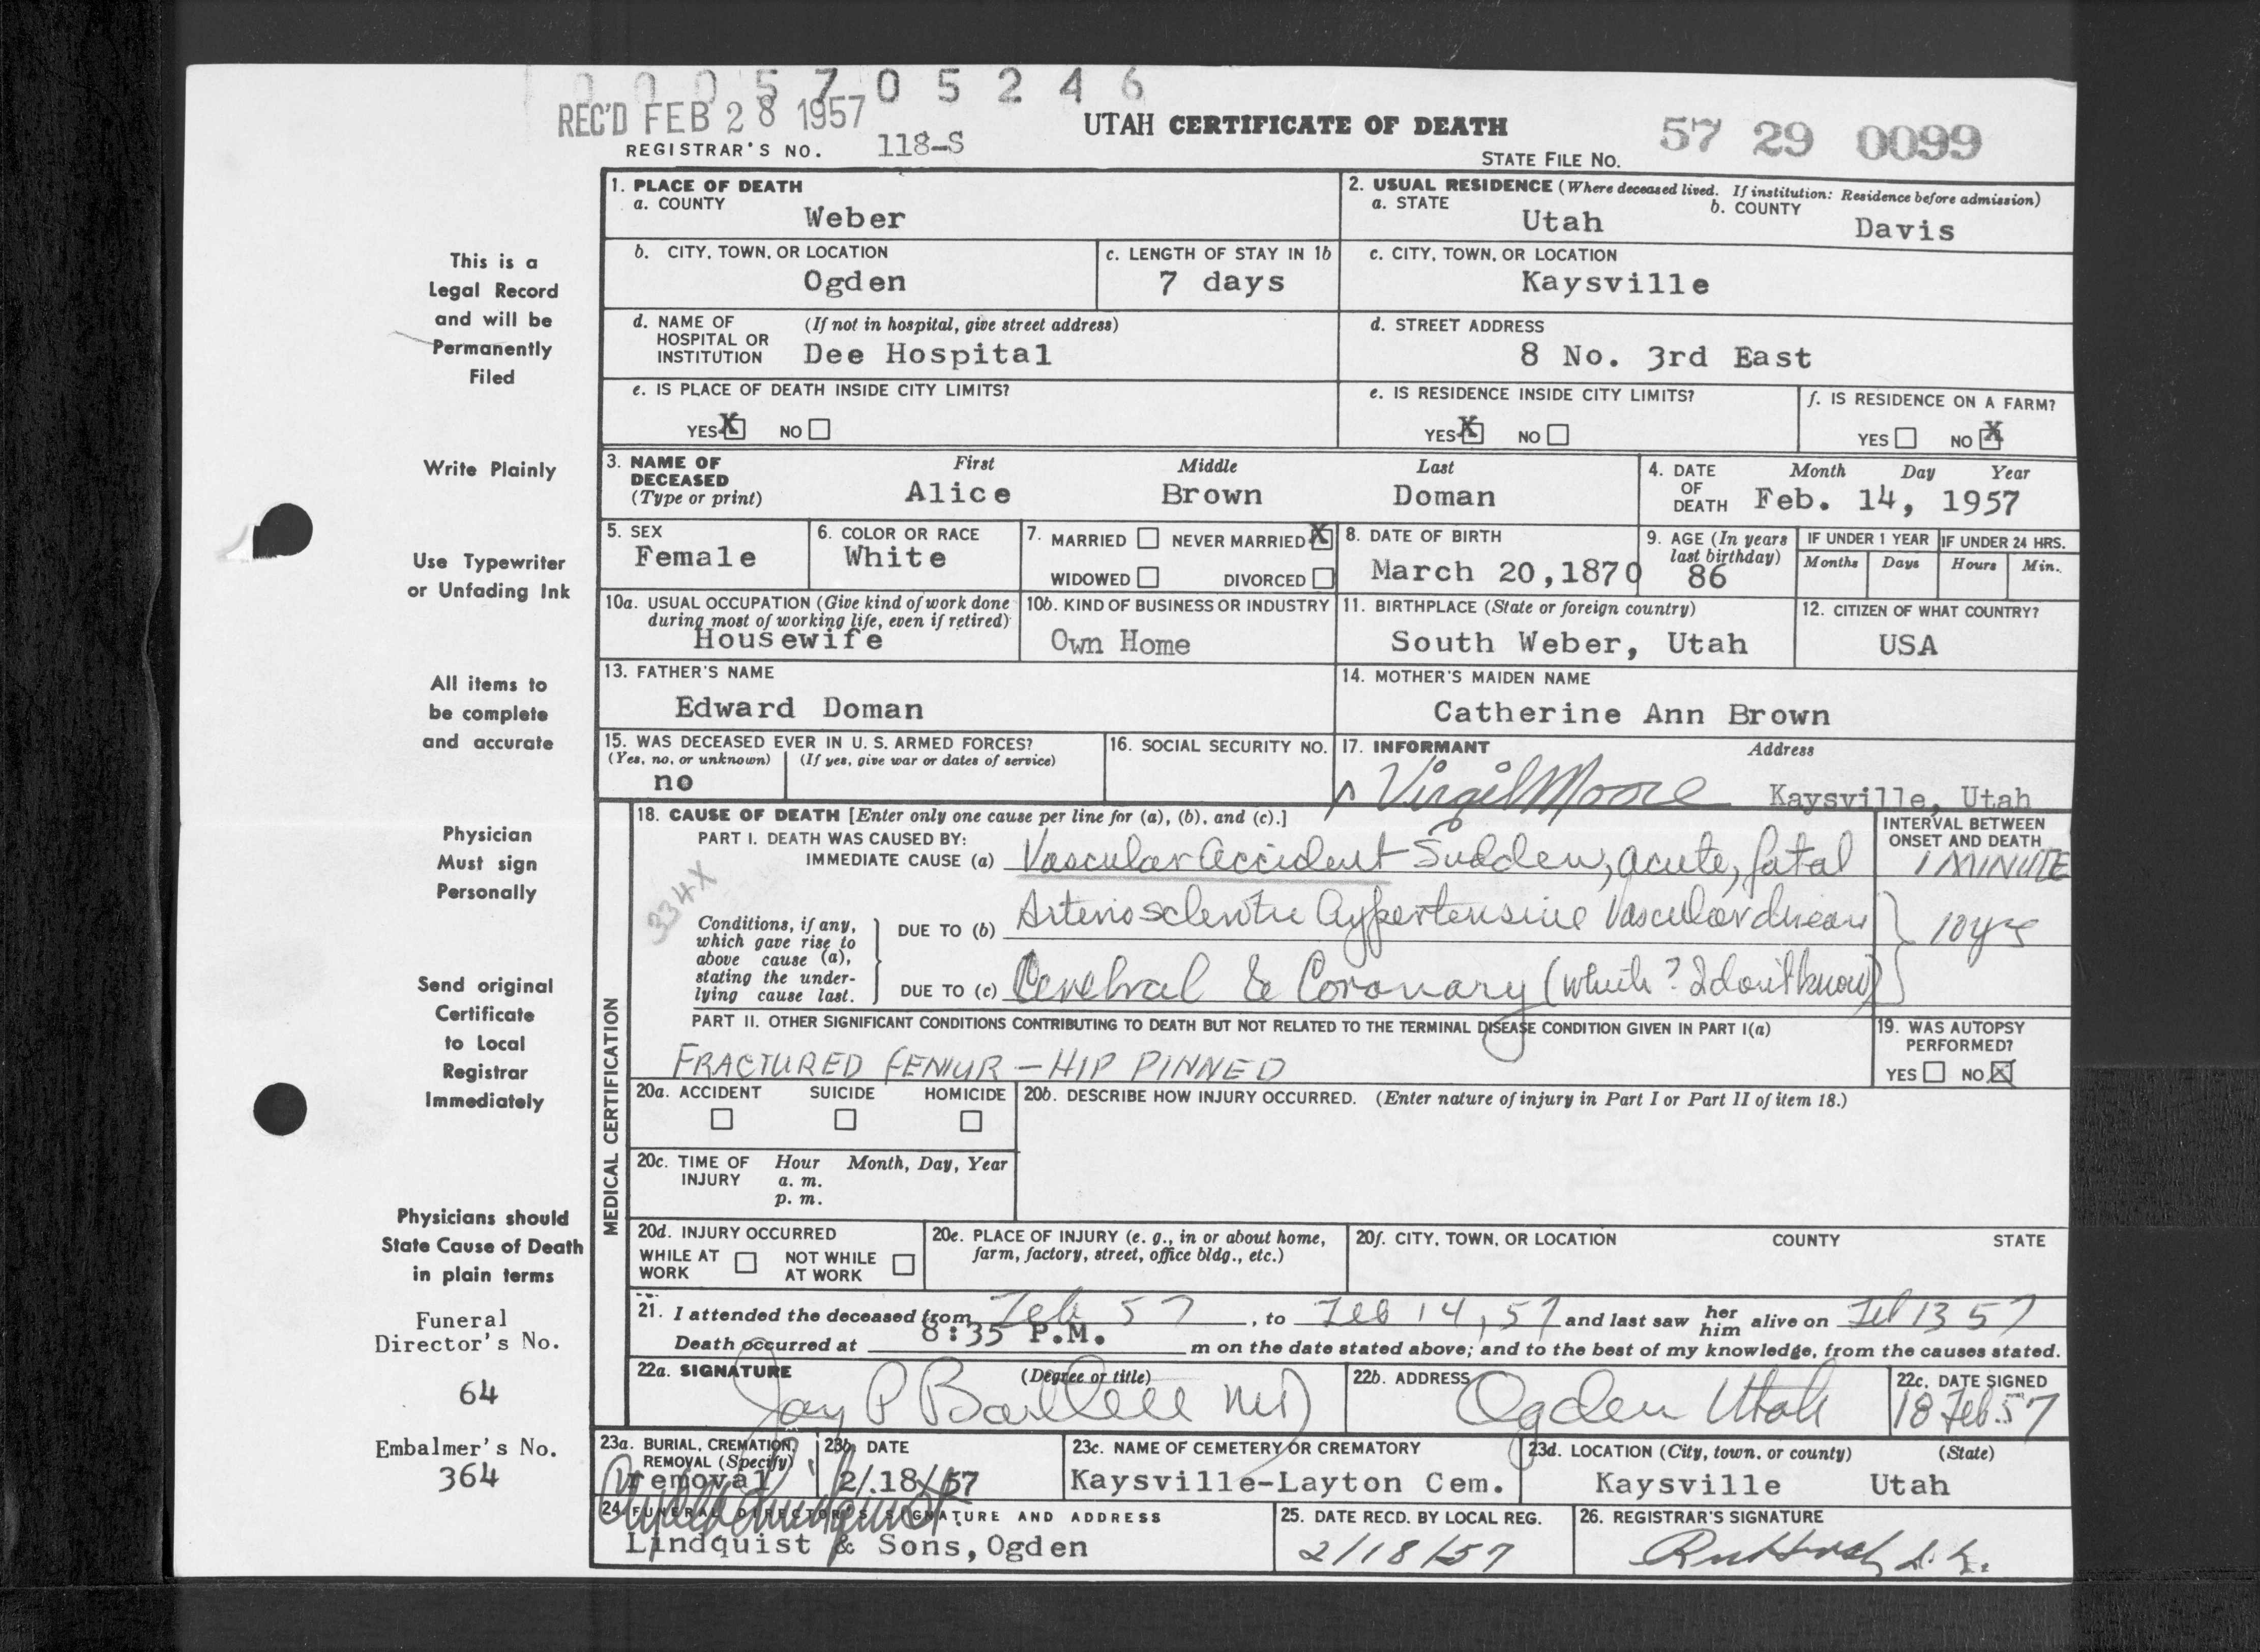 0005705246
REC'D FEB 28 1957
UTAH CERTIFICATE OF DEATH
57 29 0099
REGISTRAR'S NO. 118-S
STATE FILE NO.
This is a
Legal Record
and will be
Permanently
Filed
Write Plainly
Use Typewriter
or Unfading Ink
All items to
be complete
and accurate
Physician
Must sign
Personally
Send original
Certificate
to Local
Registrar
Immediately
Physicians should
State Cause of Death
in plain terms
Funeral
Director's No.
64
Embalmer's No.
364
1. PLACE OF DEATH
a. COUNTY
Weber
2. USUAL RESIDENCE (Where deceased lived. If institution: Residence before admission)
a. STATE
Utah
b. COUNTY
Davis
b. CITY, TOWN, OR LOCATION
Ogden
c. LENGTH OF STAY IN 1b
7 days
c. CITY, TOWN, OR LOCATION
Kaysville
d. NAME OF HOSPITAL OR INSTITUTION
(If not in hospital, give street address)
Dee Hospital
d. STREET ADDRESS
8 No. 3rd East
e. IS PLACE OF DEATH INSIDE CITY LIMITS?
YES X NO
e. IS RESIDENCE INSIDE CITY LIMITS?
YES X NO
f. IS RESIDENCE ON A FARM?
YES NO X
3. NAME OF DECEASED
(Type or print)
First Middle Last
Alice Brown Doman
4. DATE OF DEATH
Month Day Year
Feb. 14, 1957
5. SEX
Female
6. COLOR OR RACE
White
7. MARRIED NEVER MARRIED X
WIDOWED DIVORCED
8. DATE OF BIRTH
March 20,1870
9. AGE (In years last birthday)
86
IF UNDER 1 YEAR
Months Days
IF UNDER 24 HRS.
Hours Min.
10a. USUAL OCCUPATION (Give kind of work done
during most of working life, even if retired)
Housewife
10b. KIND OF BUSINESS OR INDUSTRY
Own Home
11. BIRTHPLACE (State or foreign country)
South Weber, Utah
12. CITIZEN OF WHAT COUNTRY?
USA
13. FATHER'S NAME
Edward Doman
14. MOTHER'S MAIDEN NAME
Catherine Ann Brown
15. WAS DECEASED EVER IN U. S. ARMED FORCES?
(Yes, no, or unknown) (If yes, give war or dates of service)
no
16. SOCIAL SECURITY NO.
17. INFORMANT Address
Virgil Moore Kaysville, Utah
MEDICAL CERTIFICATION
18. CAUSE OF DEATH [Enter only one cause per line for (a), (b), and (c).]
PART I. DEATH WAS CAUSED BY:
IMMEDIATE CAUSE (a) Vascular Accident Sudden, acute, fatal
INTERVAL BETWEEN
ONSET AND DEATH
1 MINUTE
334X
Conditions, if any,
which gave rise to
above cause (a),
stating the under-
lying cause last.
DUE TO (b) Arteriosclerotic Hypertensive Vascular disease
10 yrs
DUE TO (c) Cerebral & Coronary (which? I don't know)
PART II. OTHER SIGNIFICANT CONDITIONS CONTRIBUTING TO DEATH BUT NOT RELATED TO THE TERMINAL DISEASE CONDITION GIVEN IN PART I(a)
FRACTURED FEMUR - HIP PINNED
19. WAS AUTOPSY
PERFORMED?
YES NO X
20a. ACCIDENT SUICIDE HOMICIDE
20b. DESCRIBE HOW INJURY OCCURRED. (Enter nature of injury in Part I or Part II of item 18.)
20c. TIME OF INJURY
Hour Month, Day, Year
a. m.
p. m.
20d. INJURY OCCURRED
WHILE AT WORK NOT WHILE AT WORK
20e. PLACE OF INJURY (e. g., in or about home,
farm, factory, street, office bldg., etc.)
20f. CITY, TOWN, OR LOCATION COUNTY STATE
21. I attended the deceased from Feb 57, to Feb 14, 57 and last saw her him alive on Feb 13 57
Death occurred at 8:35 P.M. m on the date stated above; and to the best of my knowledge, from the causes stated.
22a. SIGNATURE (Degree or title)
Jay P Bartlett MD
22b. ADDRESS
Ogden Utah
22c. DATE SIGNED
18 Feb 57
23a. BURIAL, CREMATION,
REMOVAL (Specify)
removal
23b. DATE
2/18/57
23c. NAME OF CEMETERY OR CREMATORY
Kaysville-Layton Cem.
23d. LOCATION (City, town, or county) (State)
Kaysville Utah
24. FUNERAL DIRECTOR'S SIGNATURE AND ADDRESS
Lindquist & Sons, Ogden
25. DATE RECD. BY LOCAL REG.
2/18/57
26. REGISTRAR'S SIGNATURE